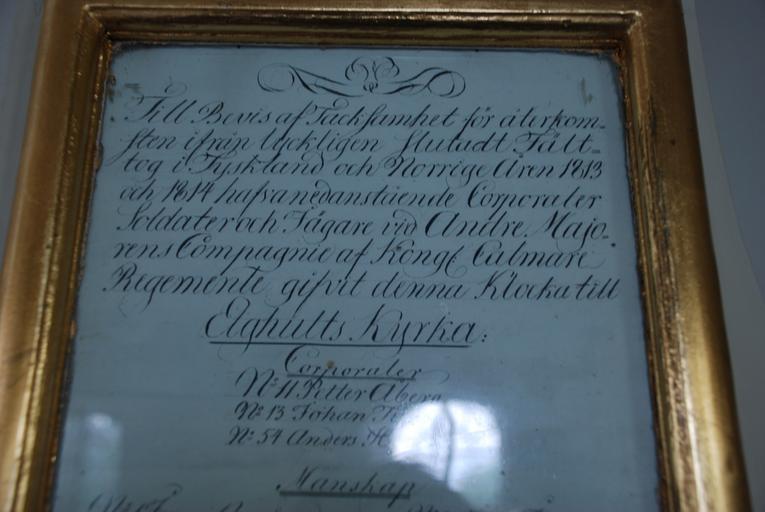 Till Bevis af Tacksamhet för återkom=
sten ifrån lyckligen slutadt Fält=
tog i Tyskland och Norrige Åren 1813
och 1814 hafva nedanstående Corporaler
Soldater och Jägare vid Andre Majo=
rens Compagnie af Kongl Calmare
Regemente gifvit denna Klocka till
Elghults Kyrka:
Corporaler
No 11 Petter Åberg
No 13 Johan
No 54 Anders
Manskap